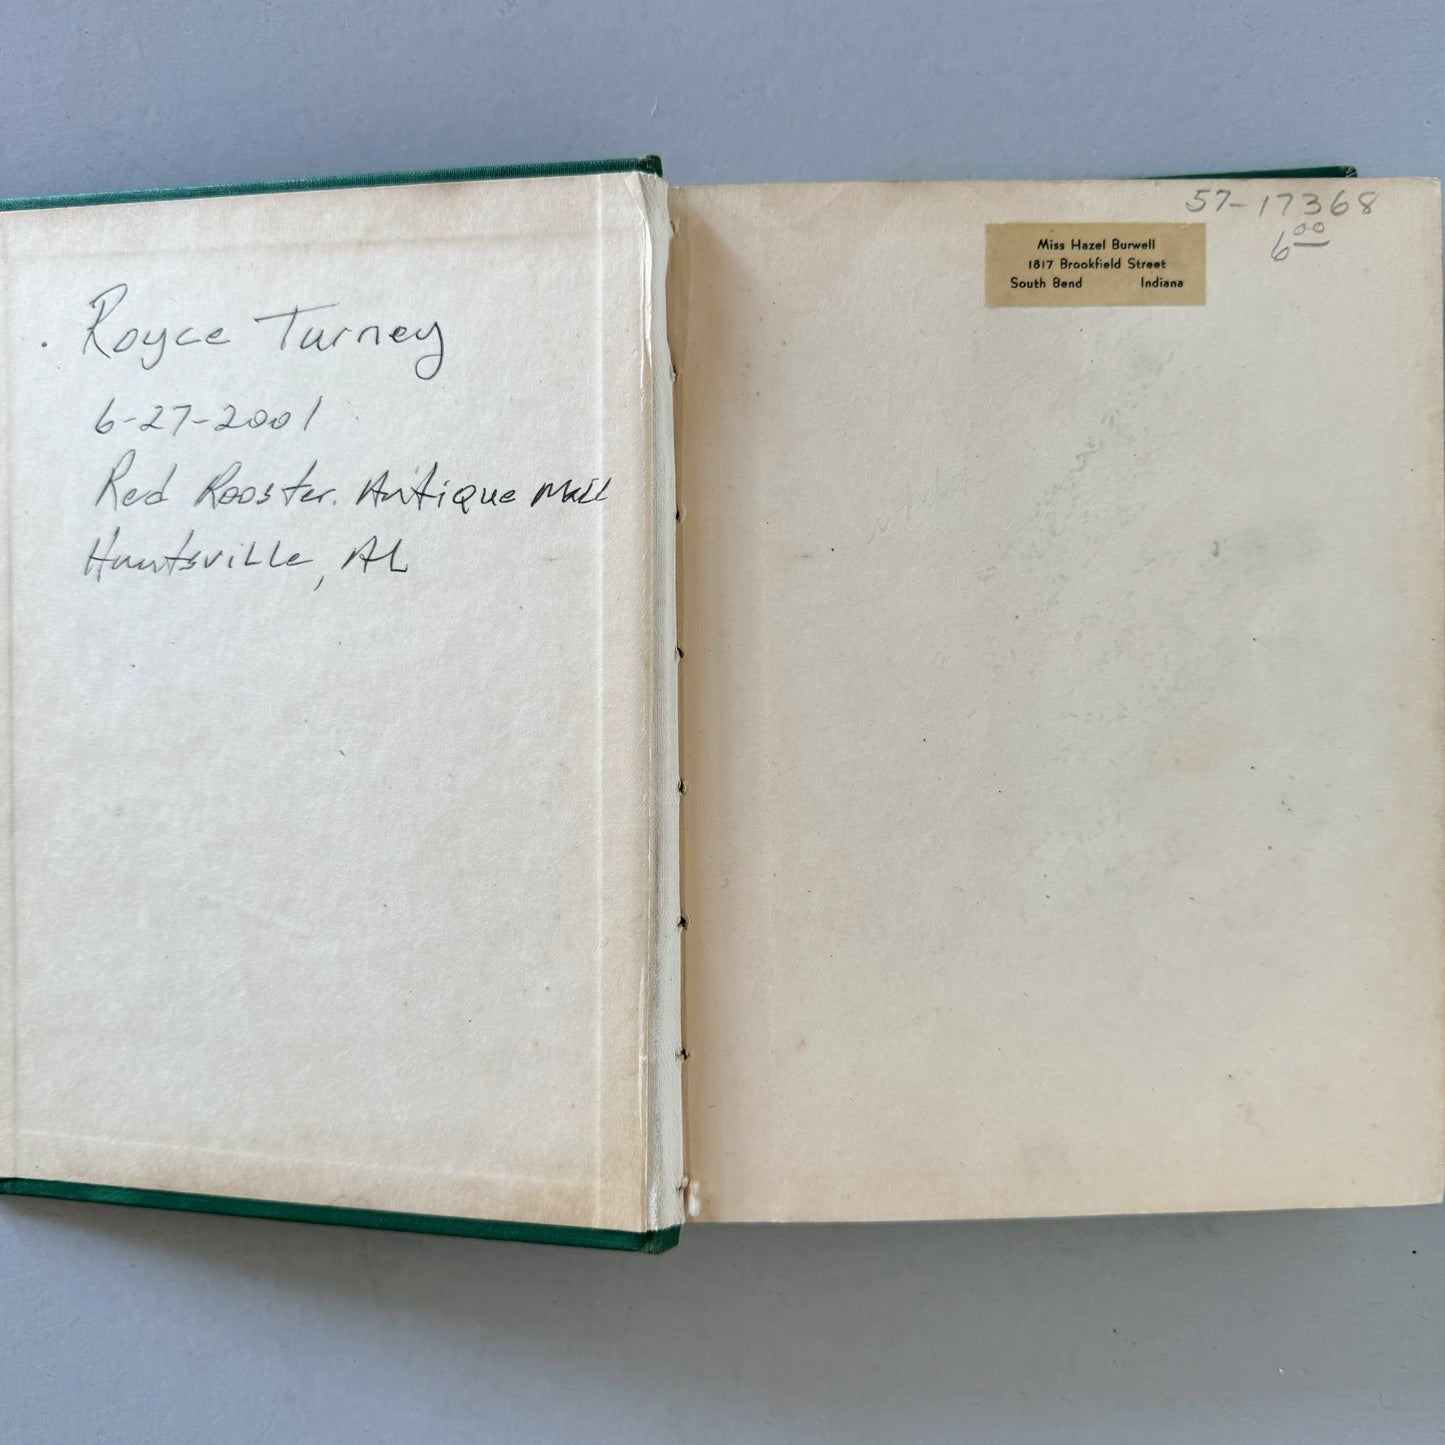 Royce Turney
6-27-2001
Red Rooster Antique Mall
Huntsville, AL
57-17368
6 00
Miss Hazel Burwell
1817 Brookfield Street
South Bend Indiana